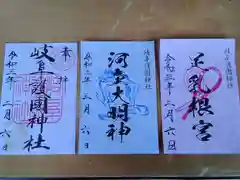 奉拝
岐阜護國神社
令和三年三月六日
岐阜護國神社
河出大明神
令和三年三月六日
岐阜護國神社
足乳根宮
令和三年三月六日